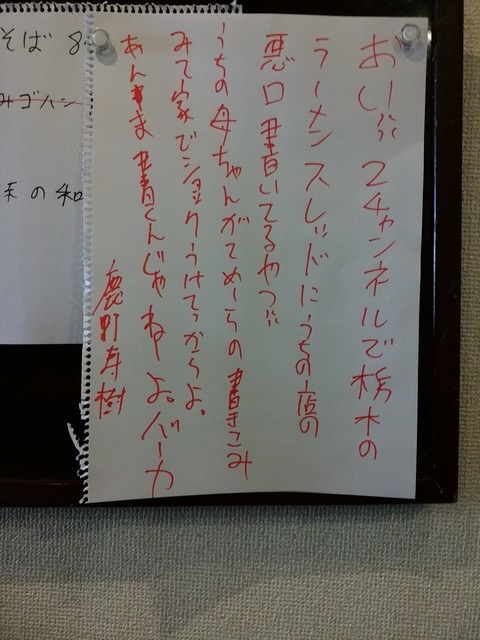 おい!! 2チャンネルで栃木の
ラーメンスレッドにうちの店の
悪口書いてるやつ!!
うちの母ちゃんがてめーらの書きこみ
みて家でショックうけてっからよ。
あんまま書くんじゃねーよ。バーカ
鹿野寿樹
そば 8
みゴハン
の和